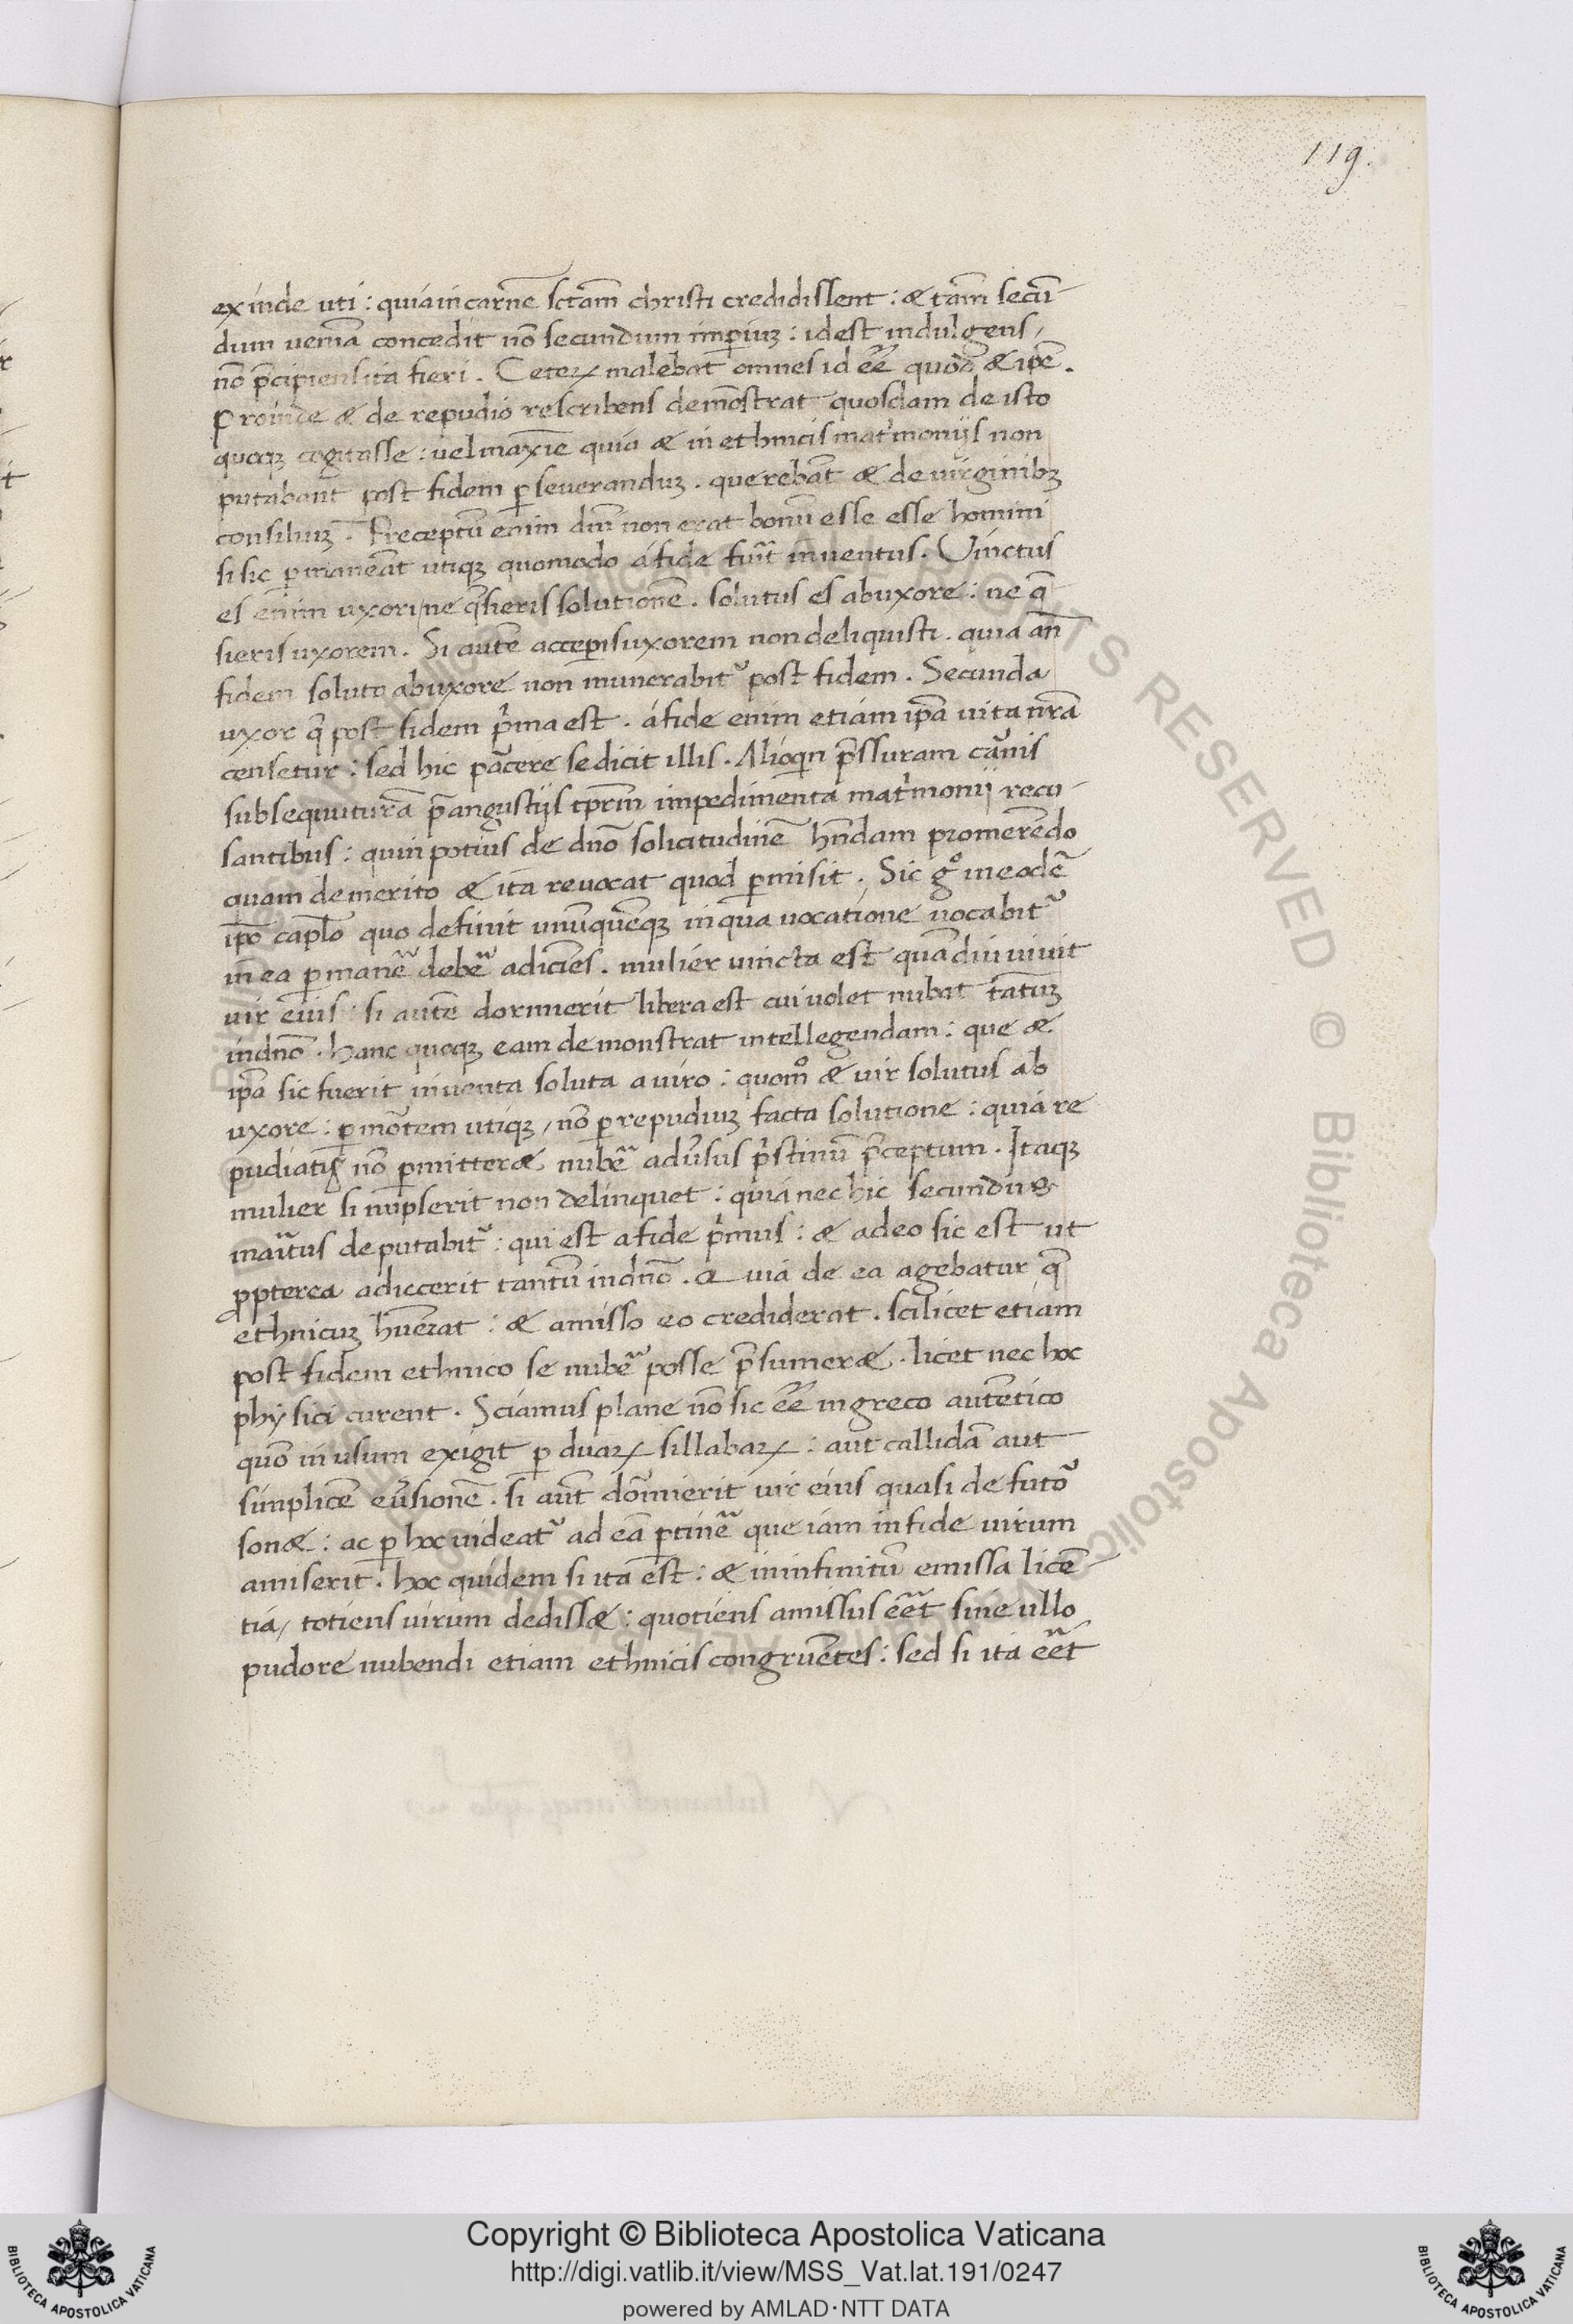 119.
exinde uti : quia in carnē sctām christi credidissent : & tām secū-
dum ueniā concedit nō secundum imp̄iuꝫ : idest indulgens,
nō p̄cipiens ita fieri . Ceteꝝ malebat omnes id eē̄ quod & ipē .
Proinde & de repudio rescribens demōstrat quosdam de isto
quoqꝫ cogitasse : uel maxīe quia & in ethnicis mat'monijs non
putabant post fidem ꝑseueranduꝫ . querebāt & de uirginibꝫ
consiliuꝫ . Preceptū enim dnī non erat bonū esse esse homini
si sic ꝑmaneāt utiqꝫ quomodo á fide fuīt inuentus . Vinctus
es enim uxori, ne q̄sieris solutionē . solutus es ab uxore : ne q̄-
sieris uxorem . Si autē acceperis uxorem non deliquisti . quia añ
fidem soluto ab uxore non munerabit᷑ post fidem . Secunda
uxor q̄ post fidem p'ma est . á fide enim etiam ipā uita nrā
censetur : sed hic pācere se dicit illis . Alioqin p̄ssuram cānis
subsequuturā p̄ angustijs tp̄rm impedimenta mat'monij recu-
santibus : quin potius de dnō solicitudinē hn̄dam promerēdo
quam demerito & ita reuocat quod ꝑmisit . Sic gº in eodē
ipō capl̄o quo definit unūquēqꝫ in qua uocatione uocabit᷑
in ea ꝑmanē᷑ debē᷑ adiciēs . mulier uincta est quādiu uiuit
uir eius : si autē dormierit libera est cui uolet nubat tātuꝫ
in dnō . hanc quoqꝫ eam demonstrat intellegendam : que &
ipā sic fuerit inuenta soluta a uiro : quomº & uir solutus ab
uxore : ꝑ mōtem utiqꝫ, nō ꝑ repudiuꝫ facta solutione : quia re
pudiatis nō ꝑmitter& nubē᷑ adūsus p'stinū p̄ceptum . Itaqꝫ
mulier si nupserit non delinquet : quia nec hic secundus
maītus deputabit᷑ : qui est a fide p'mus : & adeo sic est ut
ꝓpterea adiecerit tantū in dnō . Quia de ea agebatur q̄
ethnicuꝫ hūerat : & amisso eo crediderat . scilicet etiam
post fidem ethnico se nubē᷑ posse p̄sumer& . licet nec hoc
physici curent . Sciamus plane nō sic eē̄ in greco autētico
quō in usum exigit ꝑ duaꝝ sillabaꝝ : aut callidā aut
simplicē eūsionē . si aut̄ dōmierit uir eius quasi de futō
son& : ac ꝑ hoc uideat᷑ ad eā ꝑtinē᷑ que iam in fide uirum
amiserit . hoc quidem si ita est : & in infinitū emissa licē-
tia, totiens uirum dediss& : quotiens amissus eēt sine ullo
pudore nubendi etiam ethnicis congruētes : sed si ita eēt
Copyright © Biblioteca Apostolica Vaticana
http://digi.vatlib.it/view/MSS_Vat.lat.191/0247
powered by AMLAD·NTT DATA
BIBLIOTECA APOSTOLICA VATICANA
BIBLIOTECA APOSTOLICA VATICANA